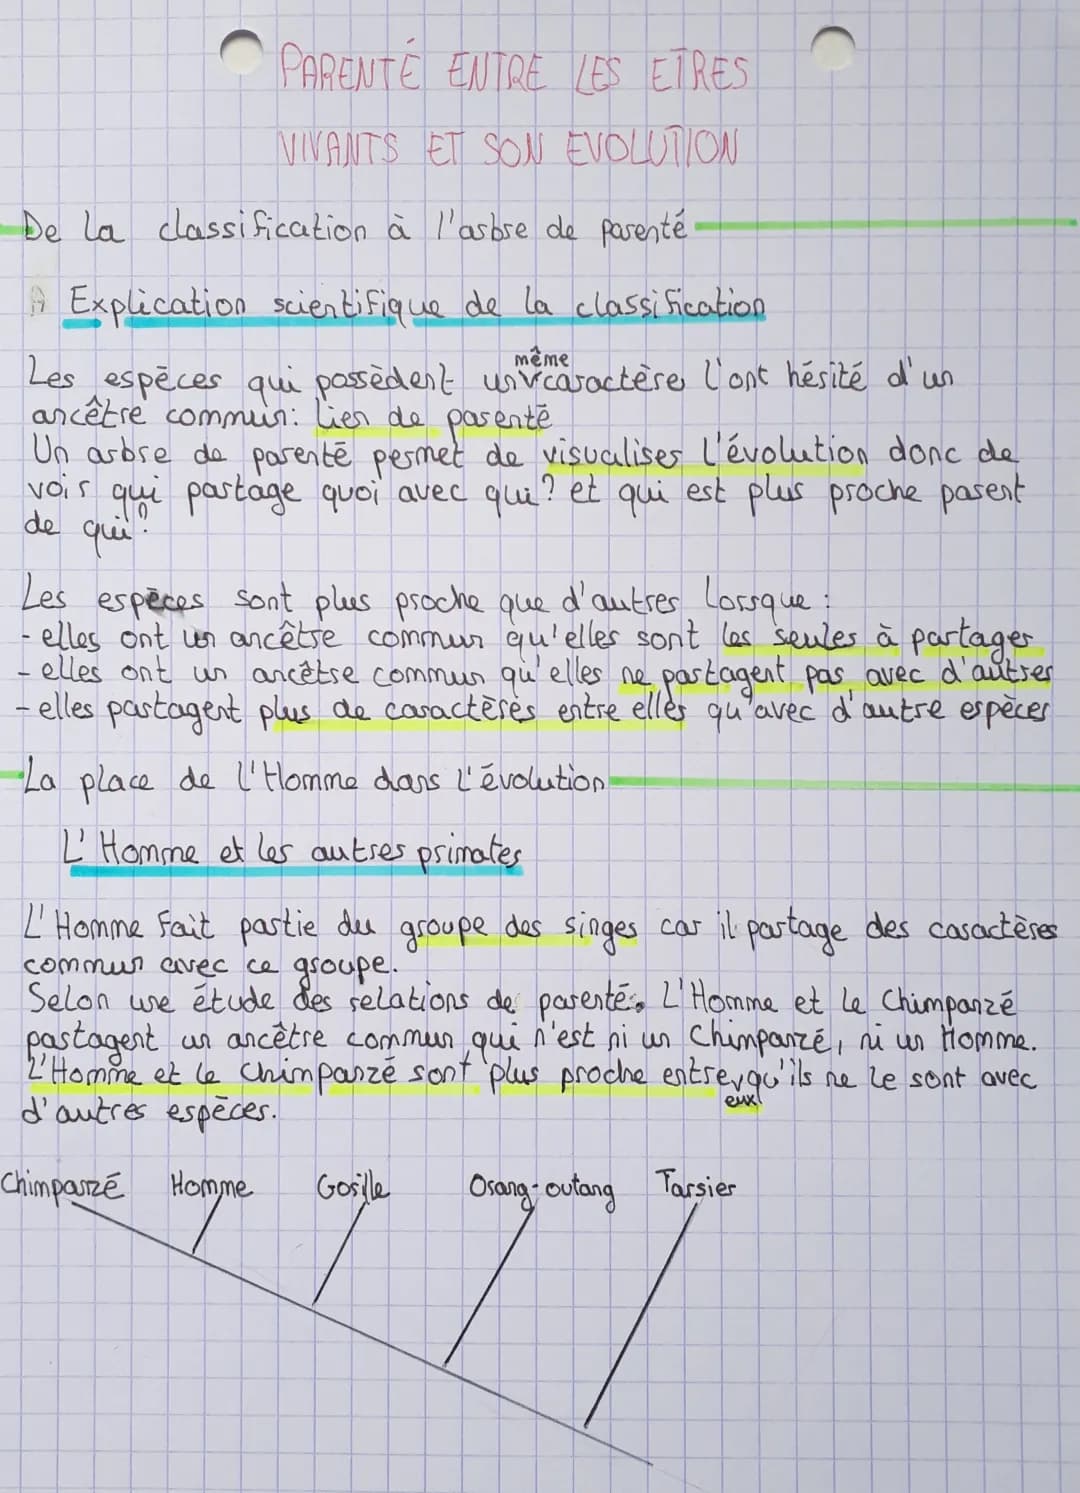 PARENTÉ ENTRE LES ETRES
VIVANTS ET SON EVOLUTION
De la classification à l'arbre de parenté
Explication scientifique de la classification
Les espèces qui possèdent un même caractère l'ont hérité d'un
ancêtre commun: lien de parenté
Un arbre de parenté permet de visualiser l'évolution donc de
voir qui partage quoi avec qui? et qui est plus proche parent
de qui?
Les espèces sont plus proche que d'autres lorsque :
- elles ont un ancêtre commun qu'elles sont les seules à partager
- elles ont un ancêtre commun qu'elles ne partagent pas avec d'autres
- elles partagent plus de caractères entre elles qu'avec d'autre espèces
La place de l'Homme dans l'évolution
L'Homme et les autres primates
L'Homme fait partie du groupe des singes car il partage des caractères
commun avec ce groupe.
Selon une étude des relations de parenté. L'Homme et le Chimpanzé
partagent un ancêtre commun qui n'est ni un Chimpanzé, ni un Homme.
L'Homme et le Chimpanzé sont plus proche entre eux qu'ils ne le sont avec
d'autres espèces.
Chimpanzé Homme Gorille Orang-outang Tarsier